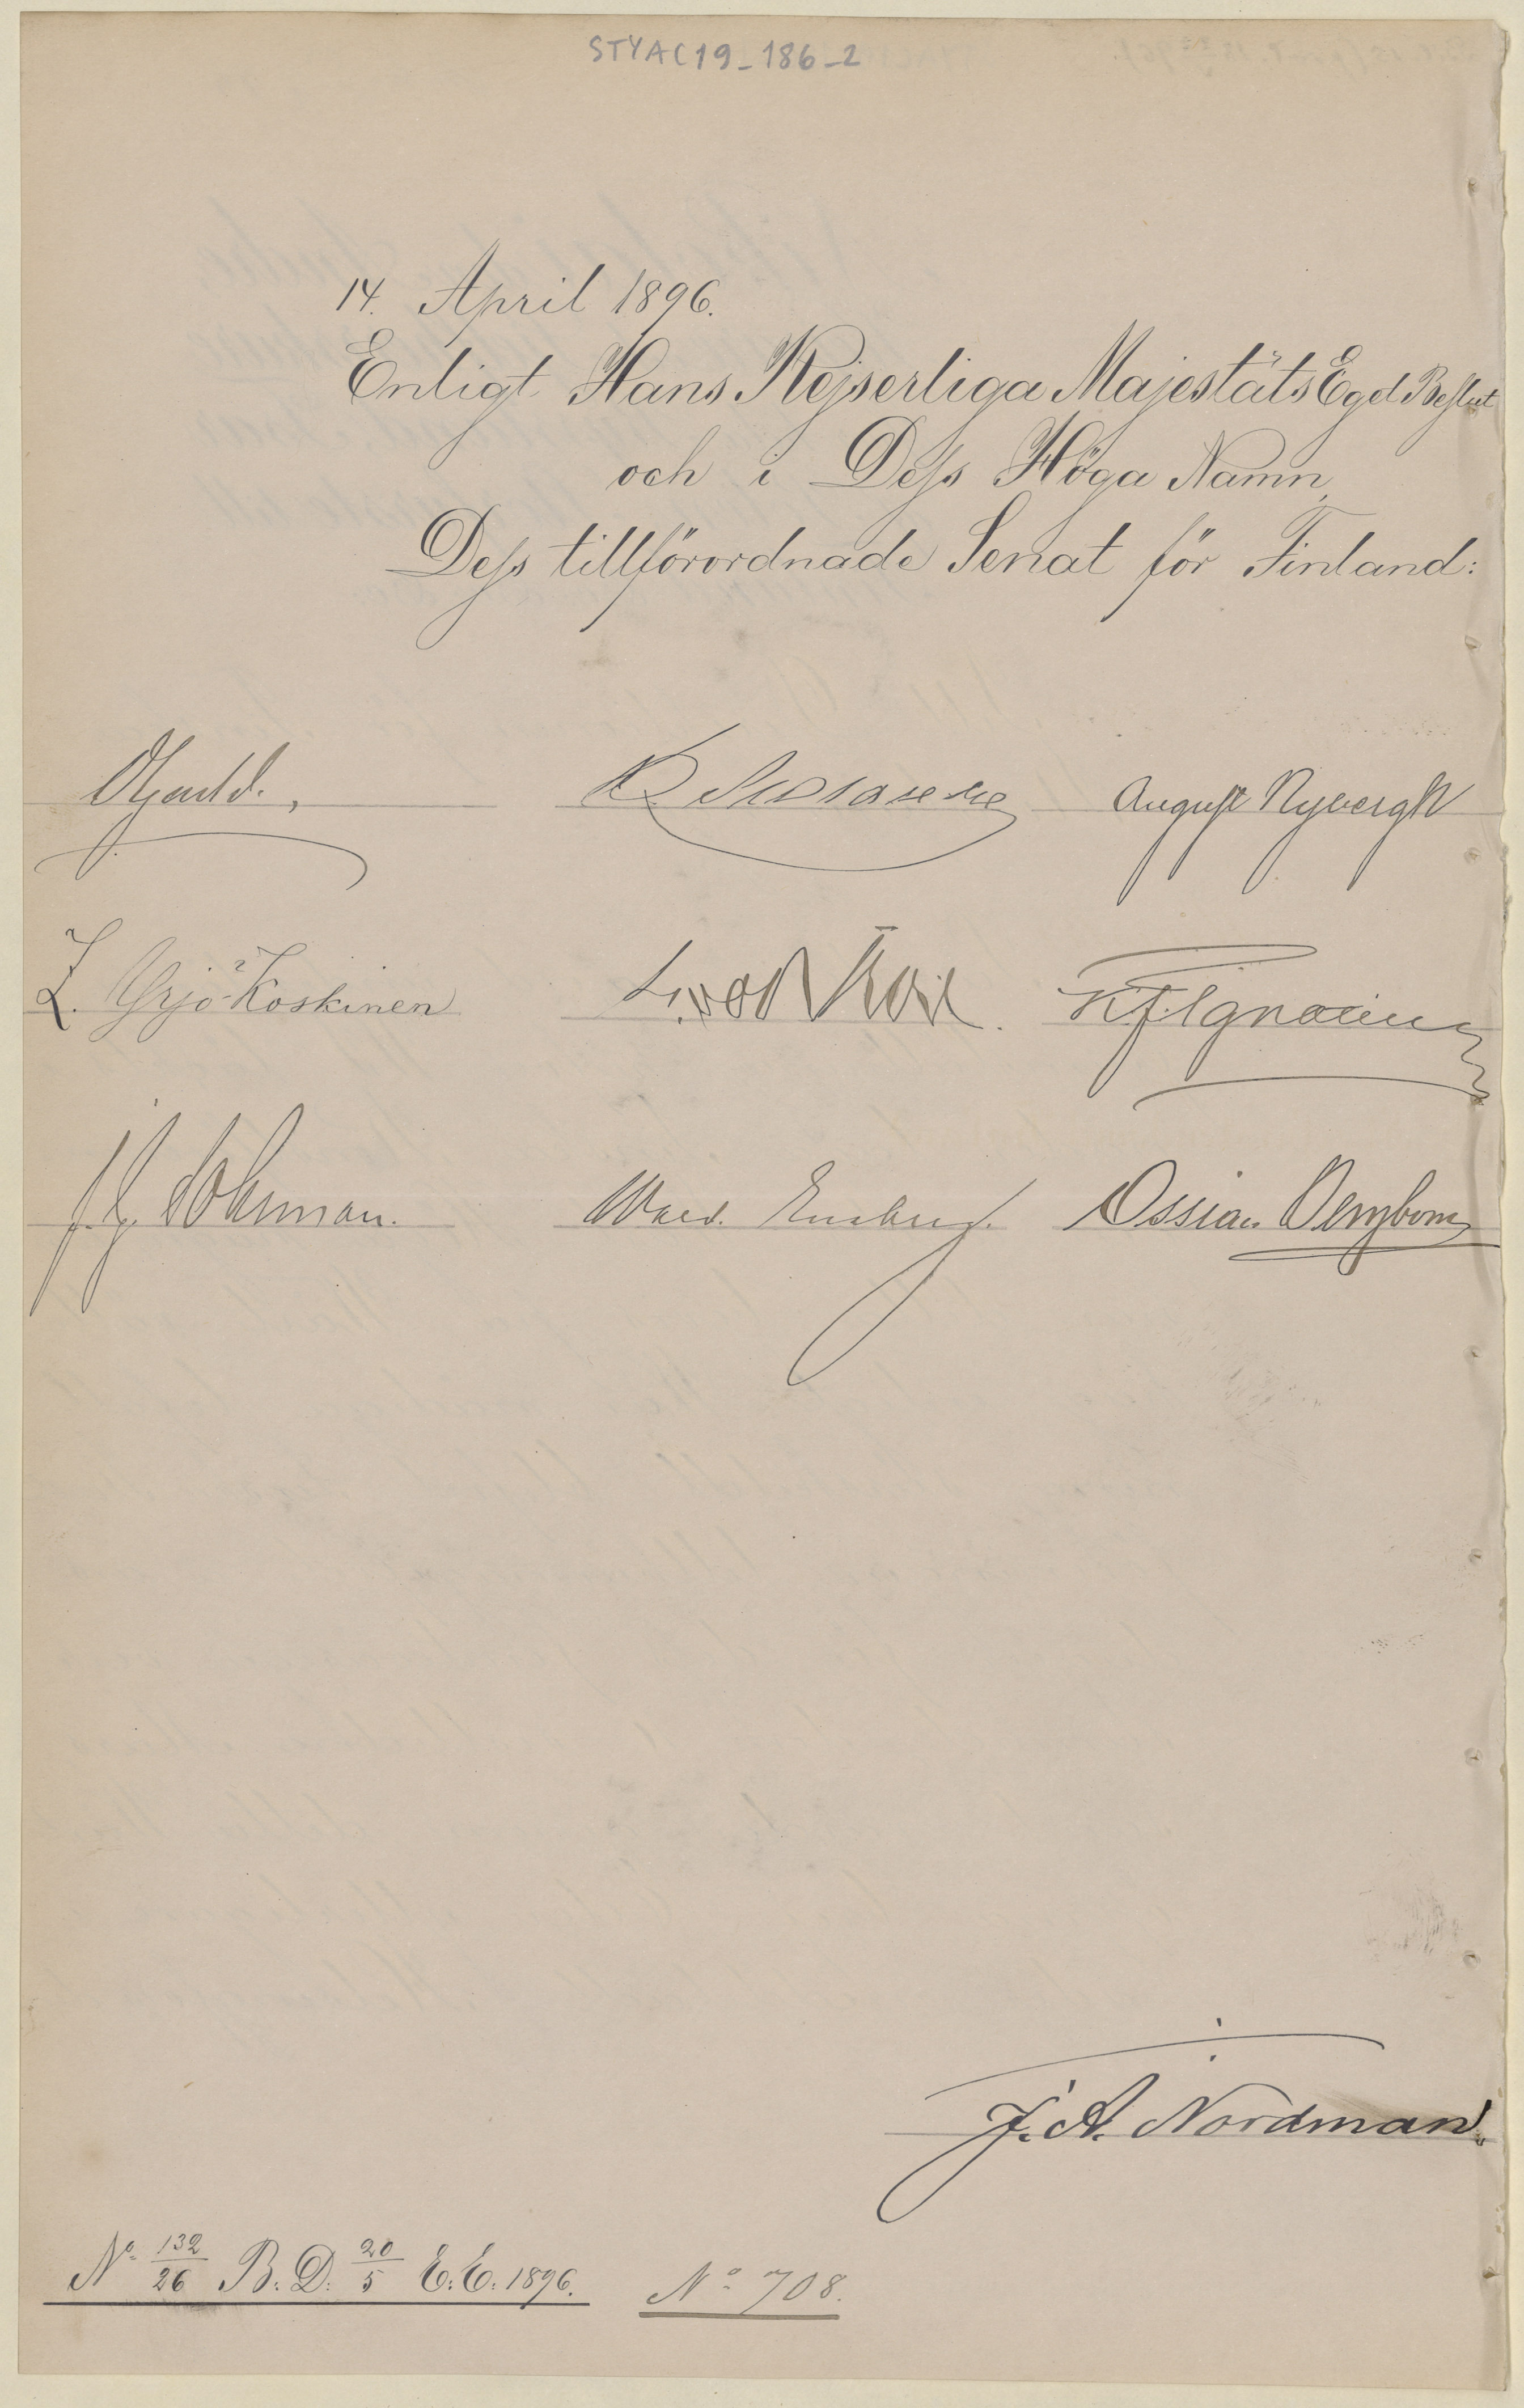 STYAC19_186_2
14. April 1896.
Enligt Hans Kejserliga Majestäts Eget Beslut
och i Dess Höga Namn,
Dess tillförordnade Senat för Finland:
August Nybergh
Z. Yrjö-Koskinen
K. F. Ignatius
J. G. Sohlman.
Wald. Eneberg.
Ossian Bergbom
J. A. Nordman.
No 132/26 B. D. 20/5 E. E. 1896. No 708.